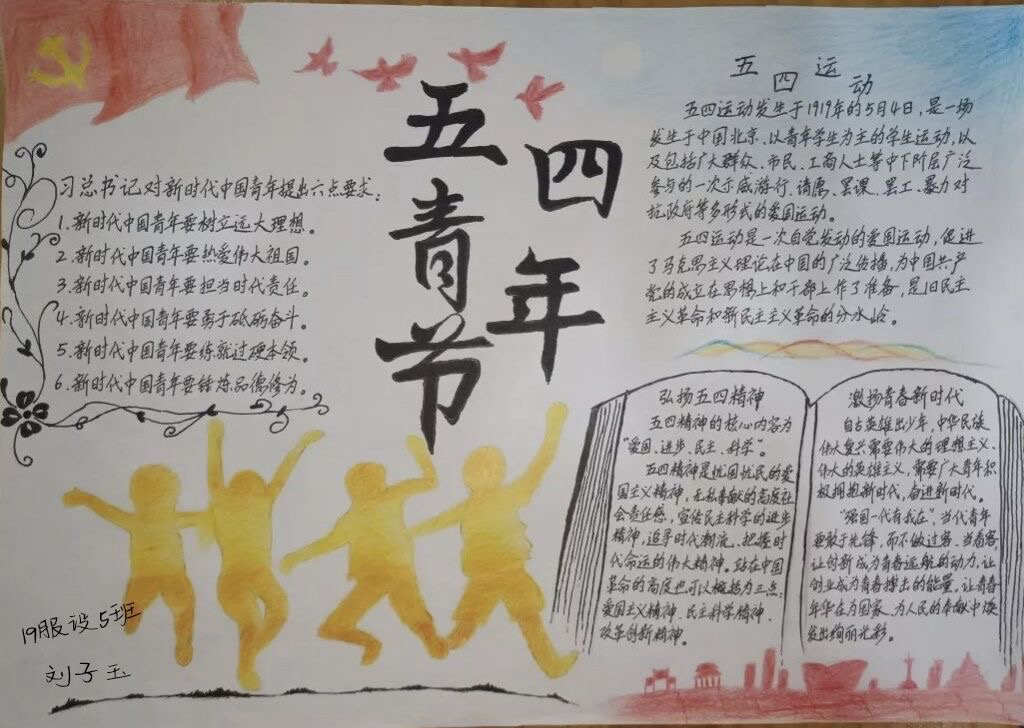 五四
青年
节
习总书记对新时代中国青年提出六点要求:
1.新时代中国青年要树立远大理想。
2.新时代中国青年要热爱伟大祖国。
3.新时代中国青年要担当时代责任。
4.新时代中国青年要勇于砥砺奋斗。
5.新时代中国青年要练就过硬本领。
6.新时代中国青年要锤炼品德修为。
五四运动
五四运动发生于1919年的5月4日,是一场
发生于中国北京、以青年学生为主的学生运动,以
及包括广大群众、市民、工商人士等中下阶层广泛
参与的一次示威游行、请愿、罢课、罢工、暴力对
抗政府等多形式的爱国运动。
五四运动是一次自觉发动的爱国运动,促进
了马克思主义理论在中国的广泛传播,为中国共产
党的成立在思想上和干部上作了准备,是旧民主
主义革命和新民主主义革命的分水岭。
弘扬五四精神
五四精神的核心内容为
“爱国、进步、民主、科学”。
五四精神是忧国忧民的爱
国主义精神,无私奉献的高度社
会责任感,宣传民主科学的进步
精神,追寻时代潮流、把握时
代命运的伟大精神。站在中国
革命的高度也可以概括为三点:
爱国主义精神、民主科学精神、
改革创新精神。
激扬青春新时代
自古英雄出少年,中华民族
伟大复兴需要伟大的理想主义、
伟大的英雄主义,需要广大青年积
极拥抱新时代,奋进新时代。
“强国一代有我在”,当代青年
要敢于先锋,而不做过客、当看客,
让创新成为青春远航的动力,让
创业成为青春搏击的能量,让青春
年华在为国家、为人民的奉献中焕
发出绚丽光彩。
19服设5班
刘子玉